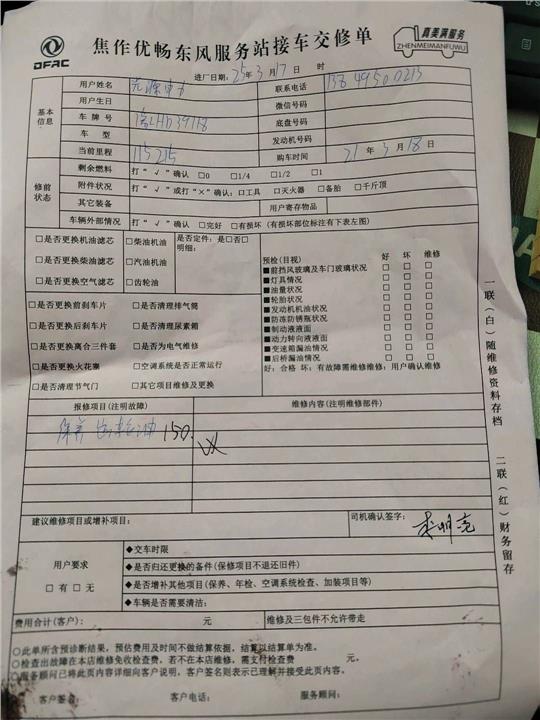 DFAC
焦作优畅东风服务站接车交修单
真美满服务
ZHENMEIMANFUWU
进厂日期: 25年3月17日 时
基本信息
用户姓名
联系电话
用户生日
微信号码
车牌号
底盘号码
车型
发动机号码
当前里程 115215
购车时间 21年3月18日
修前状态
剩余燃料 打“√”确认 □0 □1/4 □1/2 □1
附件状况 打“√”或打“×”确认: □工具 □灭火器 □备胎 □千斤顶
其它装备
用户寄存物品
车辆外部情况 打“√”确认 □完好 □有损坏 (有损坏部位标注有下表左图)
□是否更换机油滤芯 □柴油机油 是否定件: 是□否□
明细:
□是否更换柴油滤芯 □汽油机油
□是否更换空气滤芯 □齿轮油
预检(目视) 好 坏 维修
■前挡风玻璃及车门玻璃状况 □ □ □
■灯具情况 □ □ □
■油量状况 □ □ □
■轮胎状况 □ □ □
■发动机机油状况 □ □ □
■防冻防锈瓶状况 □ □ □
■制动液液面 □ □ □
■动力转向液液面 □ □ □
■变速箱漏油情况 □ □ □
■后桥漏油情况 □ □ □
好: 合格 坏: 有故障需维修维修: 用户确认维修
□是否更换前刹车片 □是否清理排气筒
□是否更换后刹车片 □是否清理尿素箱
□是否更换离合三件套 □是否为电气维修
□是否更换火花塞 □空调系统是否正常运行
□是否清理节气门 □其它项目维修及更换
报修项目(注明故障)
维修内容(注明维修部件)
保养 150.
建议维修项目或增补项目:
司机确认签字:
李明亮
用户要求
□有 □无
◆交车时限
◆是否归还更换的备件(保修项目不退还旧件)
◆是否增补其他项目(保养、年检、空调系统检查、加装项目等)
◆车辆是否需要清洁:
费用合计(客户): 元
维修及三包件不允许带走
○此单所含预诊断结果, 预估费用及时间不做结算依据, 结算以结算单为准。
○检查出故障在本店维修免收检查费, 若不在本店维修, 需支付检查费 元。
○服务顾问已将此页内容详细向客户说明, 客户签名则表示已理解并接受此页内容。
客户签名: 客户电话: 服务顾问:
一联(白)随维修资料存档
二联(红)财务留存